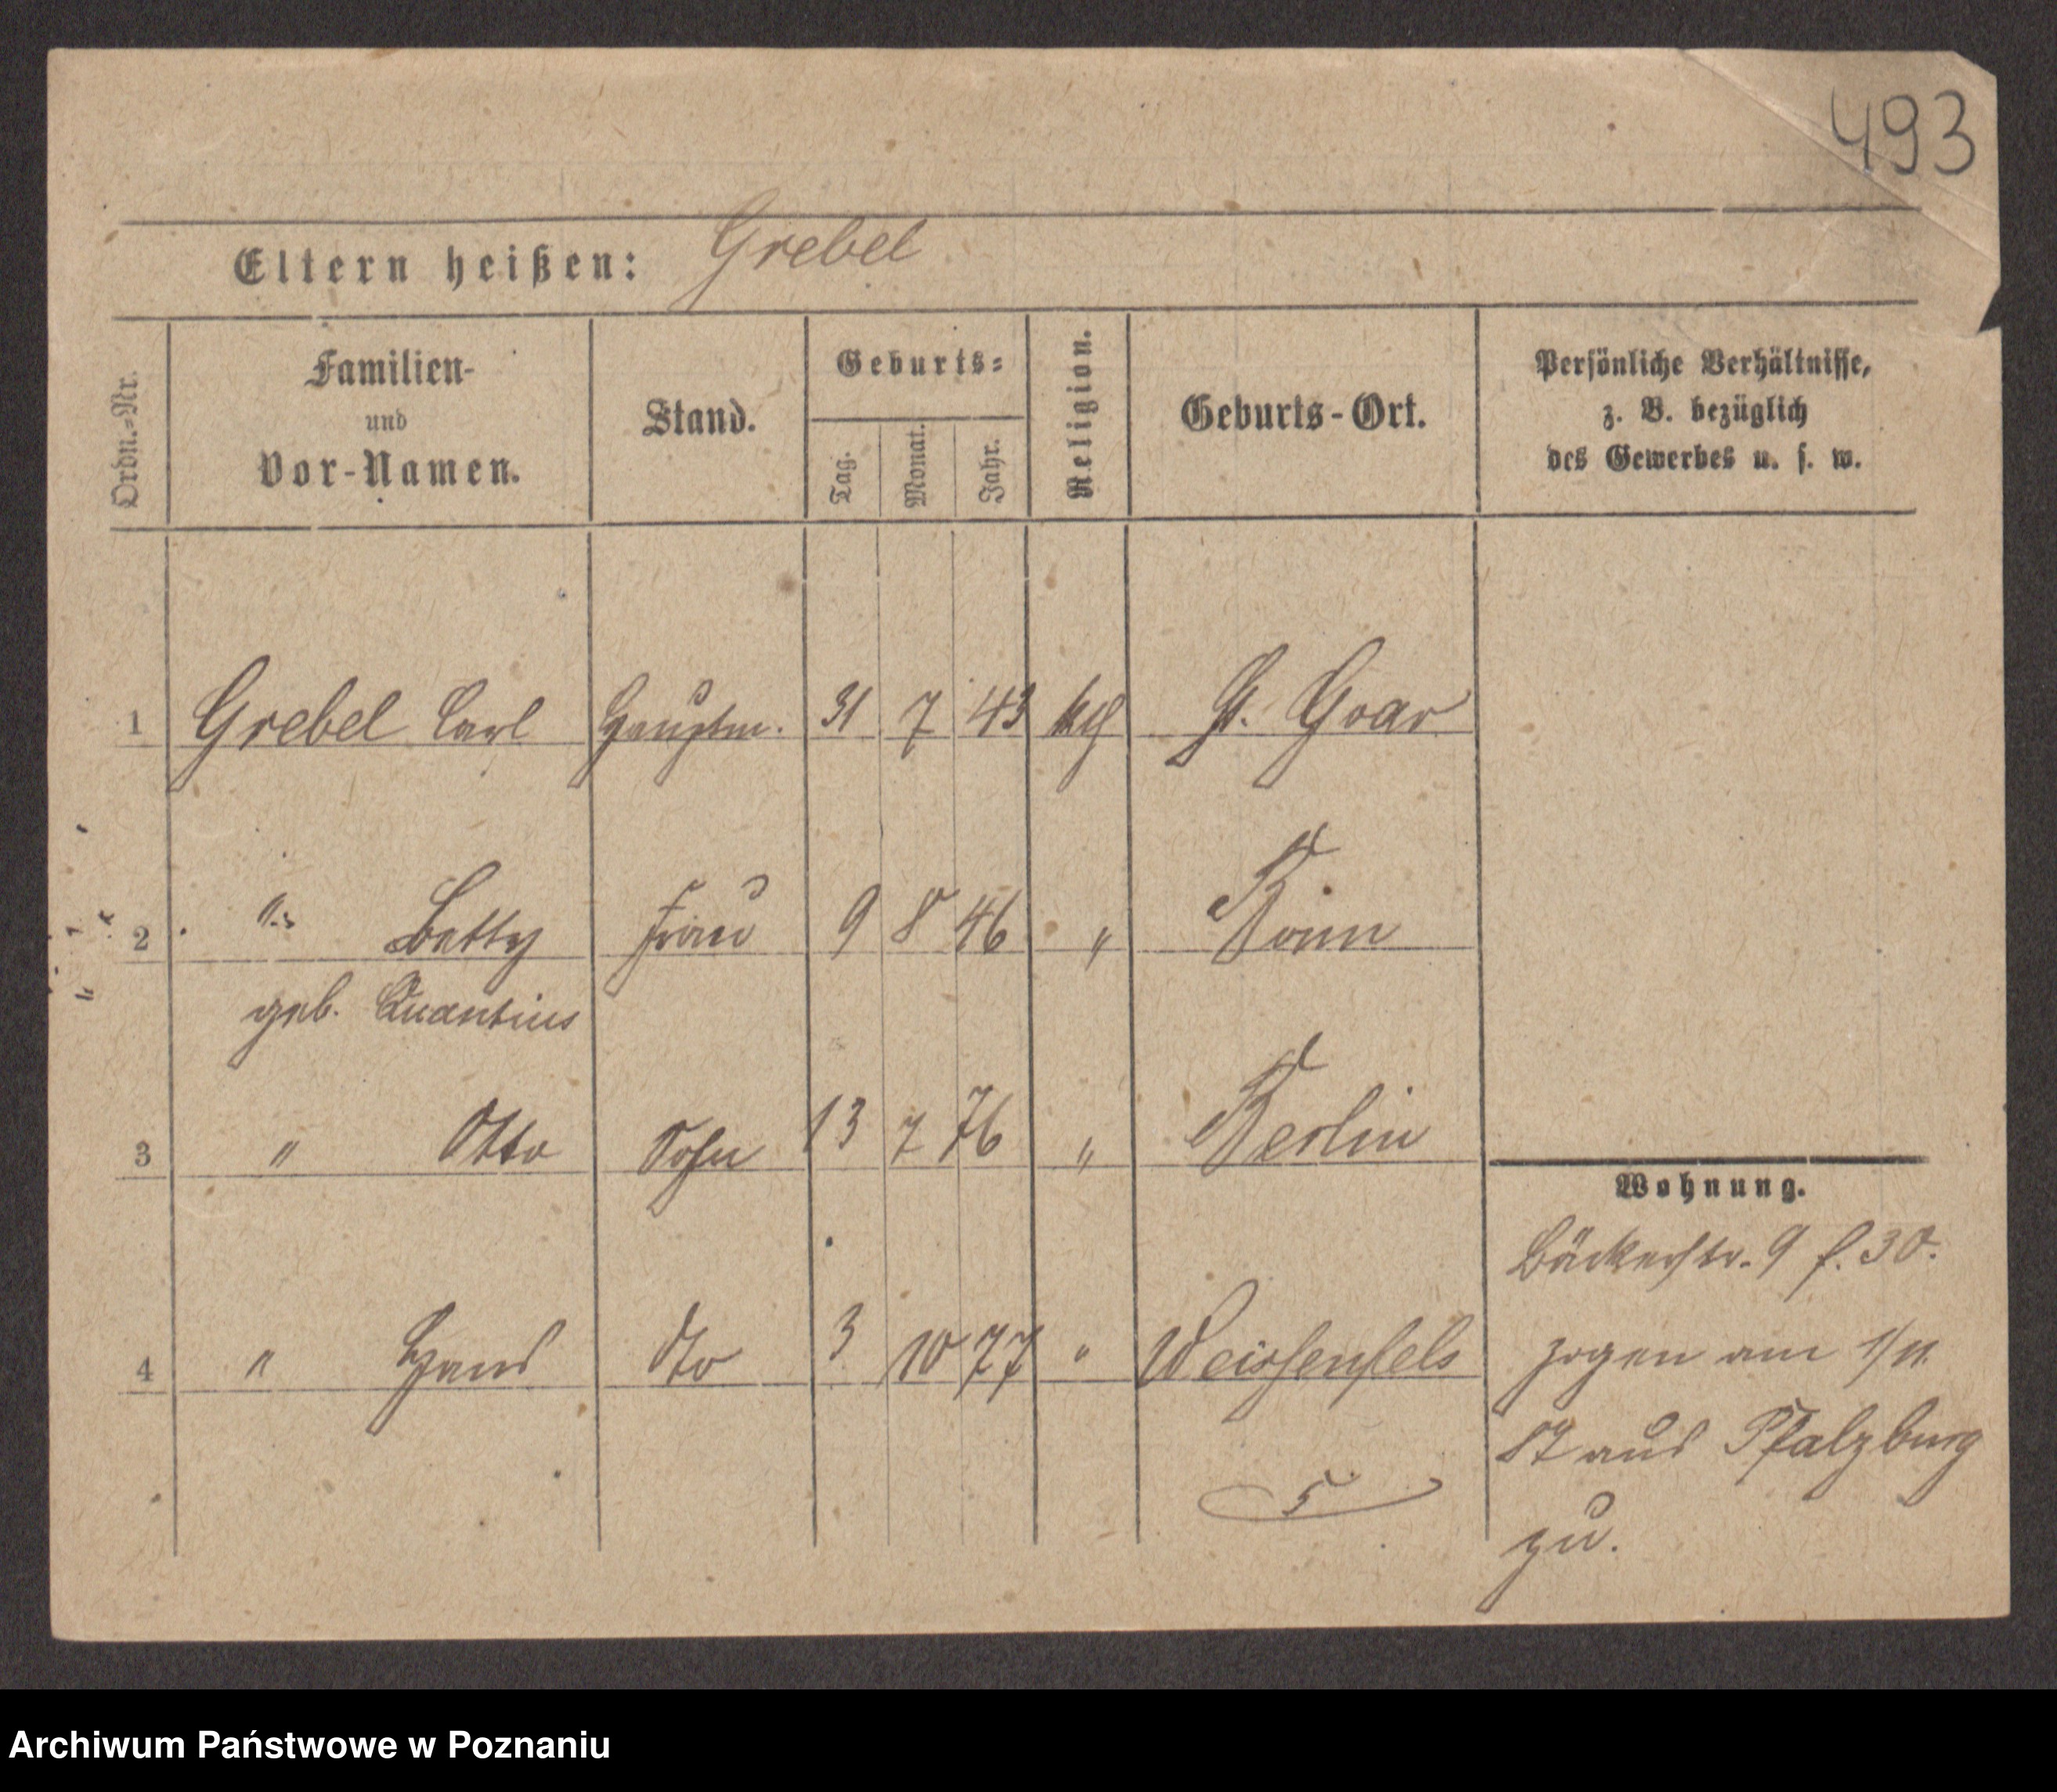 493
Eltern heißen: Grebel
Ordn.-Nr.
Familien-
und
Vor-Namen.
Stand.
Geburts-
Tag.
Monat.
Jahr.
Religion.
Geburts-Ort.
Persönliche Verhältnisse,
z. B. bezüglich
des Gewerbes u. s. w.
1 Grebel Carl Hauptm. 31 7 43 kth St. Goar
2 " Betty Frau 9 8 46 " Bonn
geb. Quantius
3 " Otto Sohn 13 7 76 " Berlin
4 " Hans dto 3 10 77 " Weissenfels
5
Wohnung.
Bäckerstr. 9 f. 30.
zogen am 1/11
87 aus Pfalzburg
zu.
Archiwum Państwowe w Poznaniu